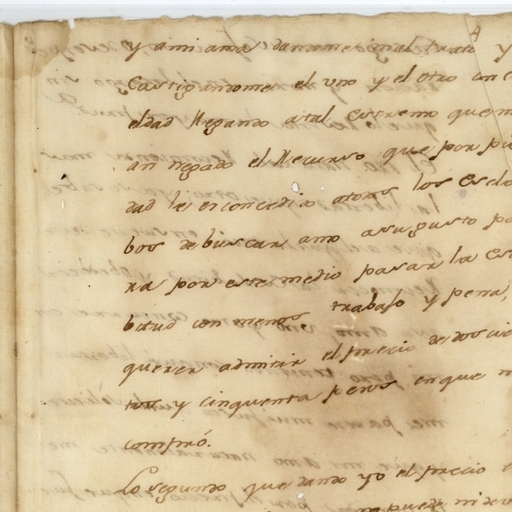 y ami ama dandome mal trato y
Castigandome el uno y el otro con c
eldad llegando atal estremo que m
an negado el Recurso que por pie
dad le es concedido atodos los escla
bos de buscar amo asu gusto pa
ra por este medio pasar la es
bitud con menos trabajo y pena,
querer admitir el precio de dos cie
tos y cinquenta pesos, en que m
compró.
Lo segundo que dando yo el precio